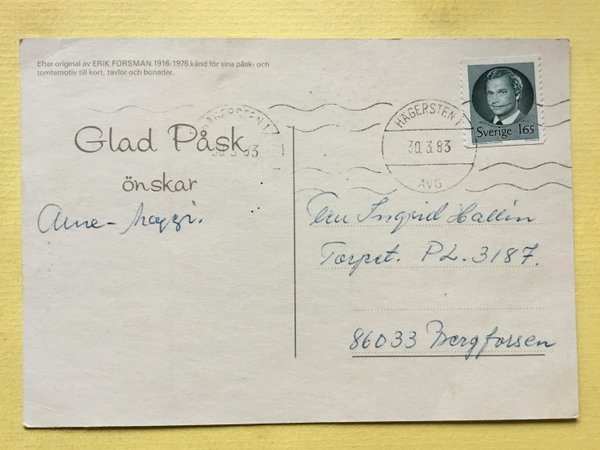 Efter original av ERIK FORSMAN 1916-1976 känd för sina påsk- och
tomtemotiv till kort, tavlor och bonader.
Glad Påsk
önskar
Anne-Maggi.
HÄGERSTEN 1
30. 3. 83
HÄGERSTEN 1
30. 3. 83
AVG
Sverige 165
Fru Ingrid Hallin
Torpet. PL. 3187.
86033 Bergforsen